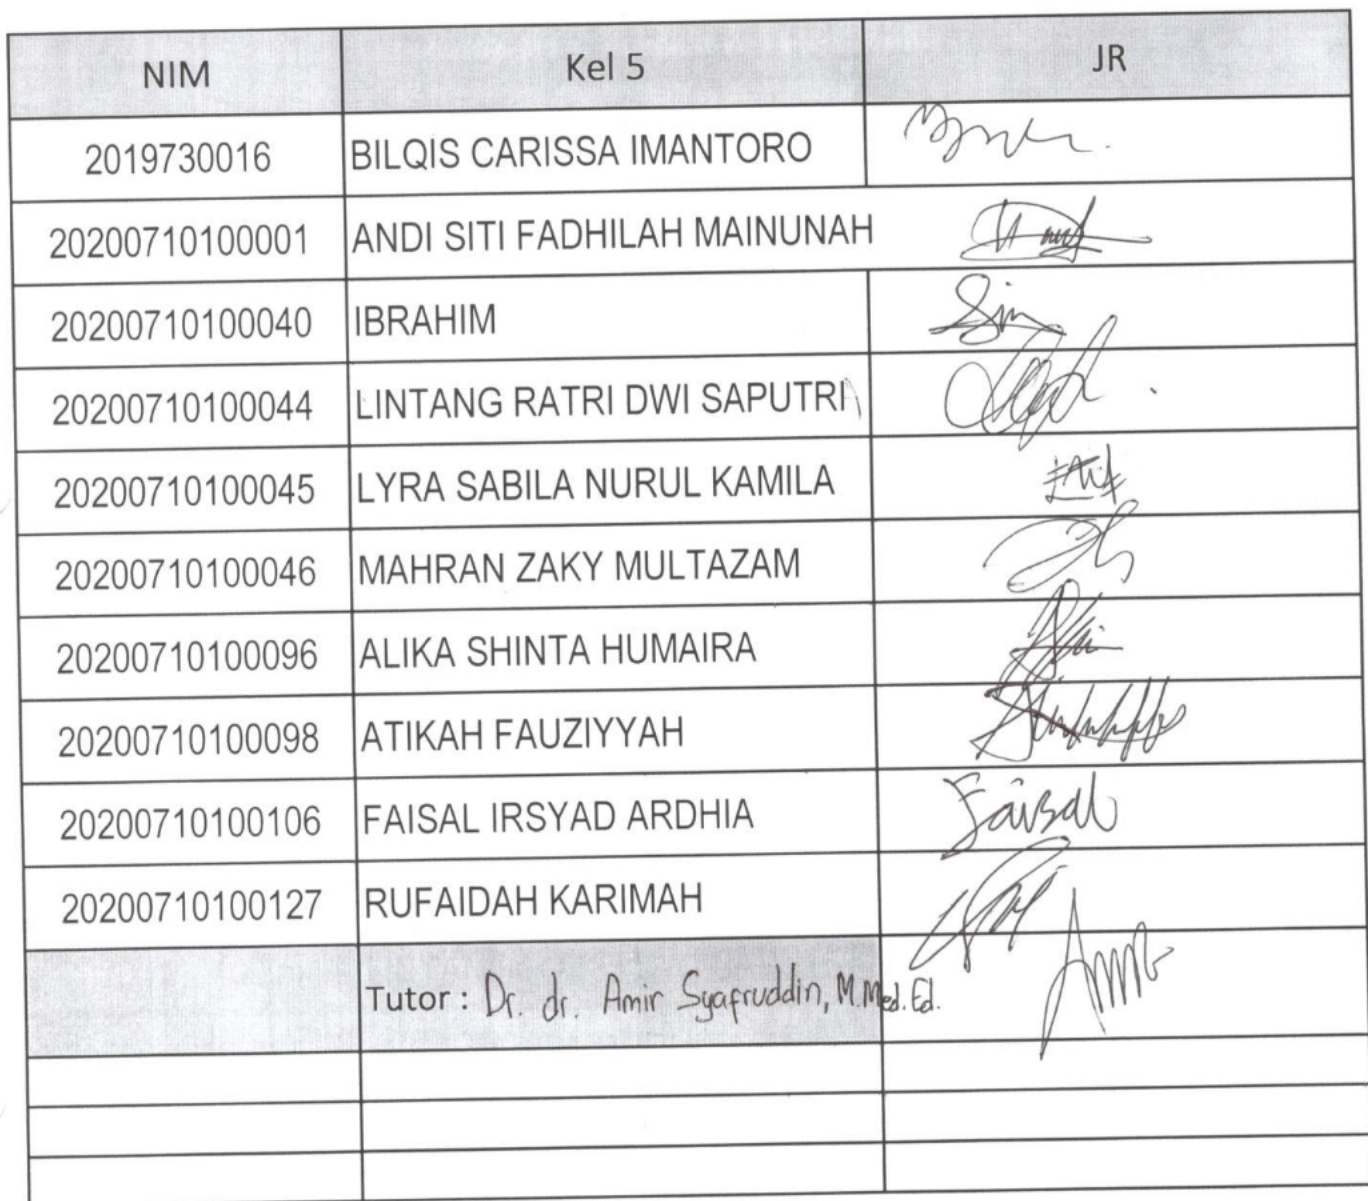 NIM Kel 5 JR
2019730016 BILQIS CARISSA IMANTORO
20200710100001 ANDI SITI FADHILAH MAINUNAH
20200710100040 IBRAHIM
20200710100044 LINTANG RATRI DWI SAPUTRI
20200710100045 LYRA SABILA NURUL KAMILA
20200710100046 MAHRAN ZAKY MULTAZAM
20200710100096 ALIKA SHINTA HUMAIRA
20200710100098 ATIKAH FAUZIYYAH
20200710100106 FAISAL IRSYAD ARDHIA Faisal
20200710100127 RUFAIDAH KARIMAH
Tutor : Dr. dr. Amir Syafruddin, M.Med.Ed.